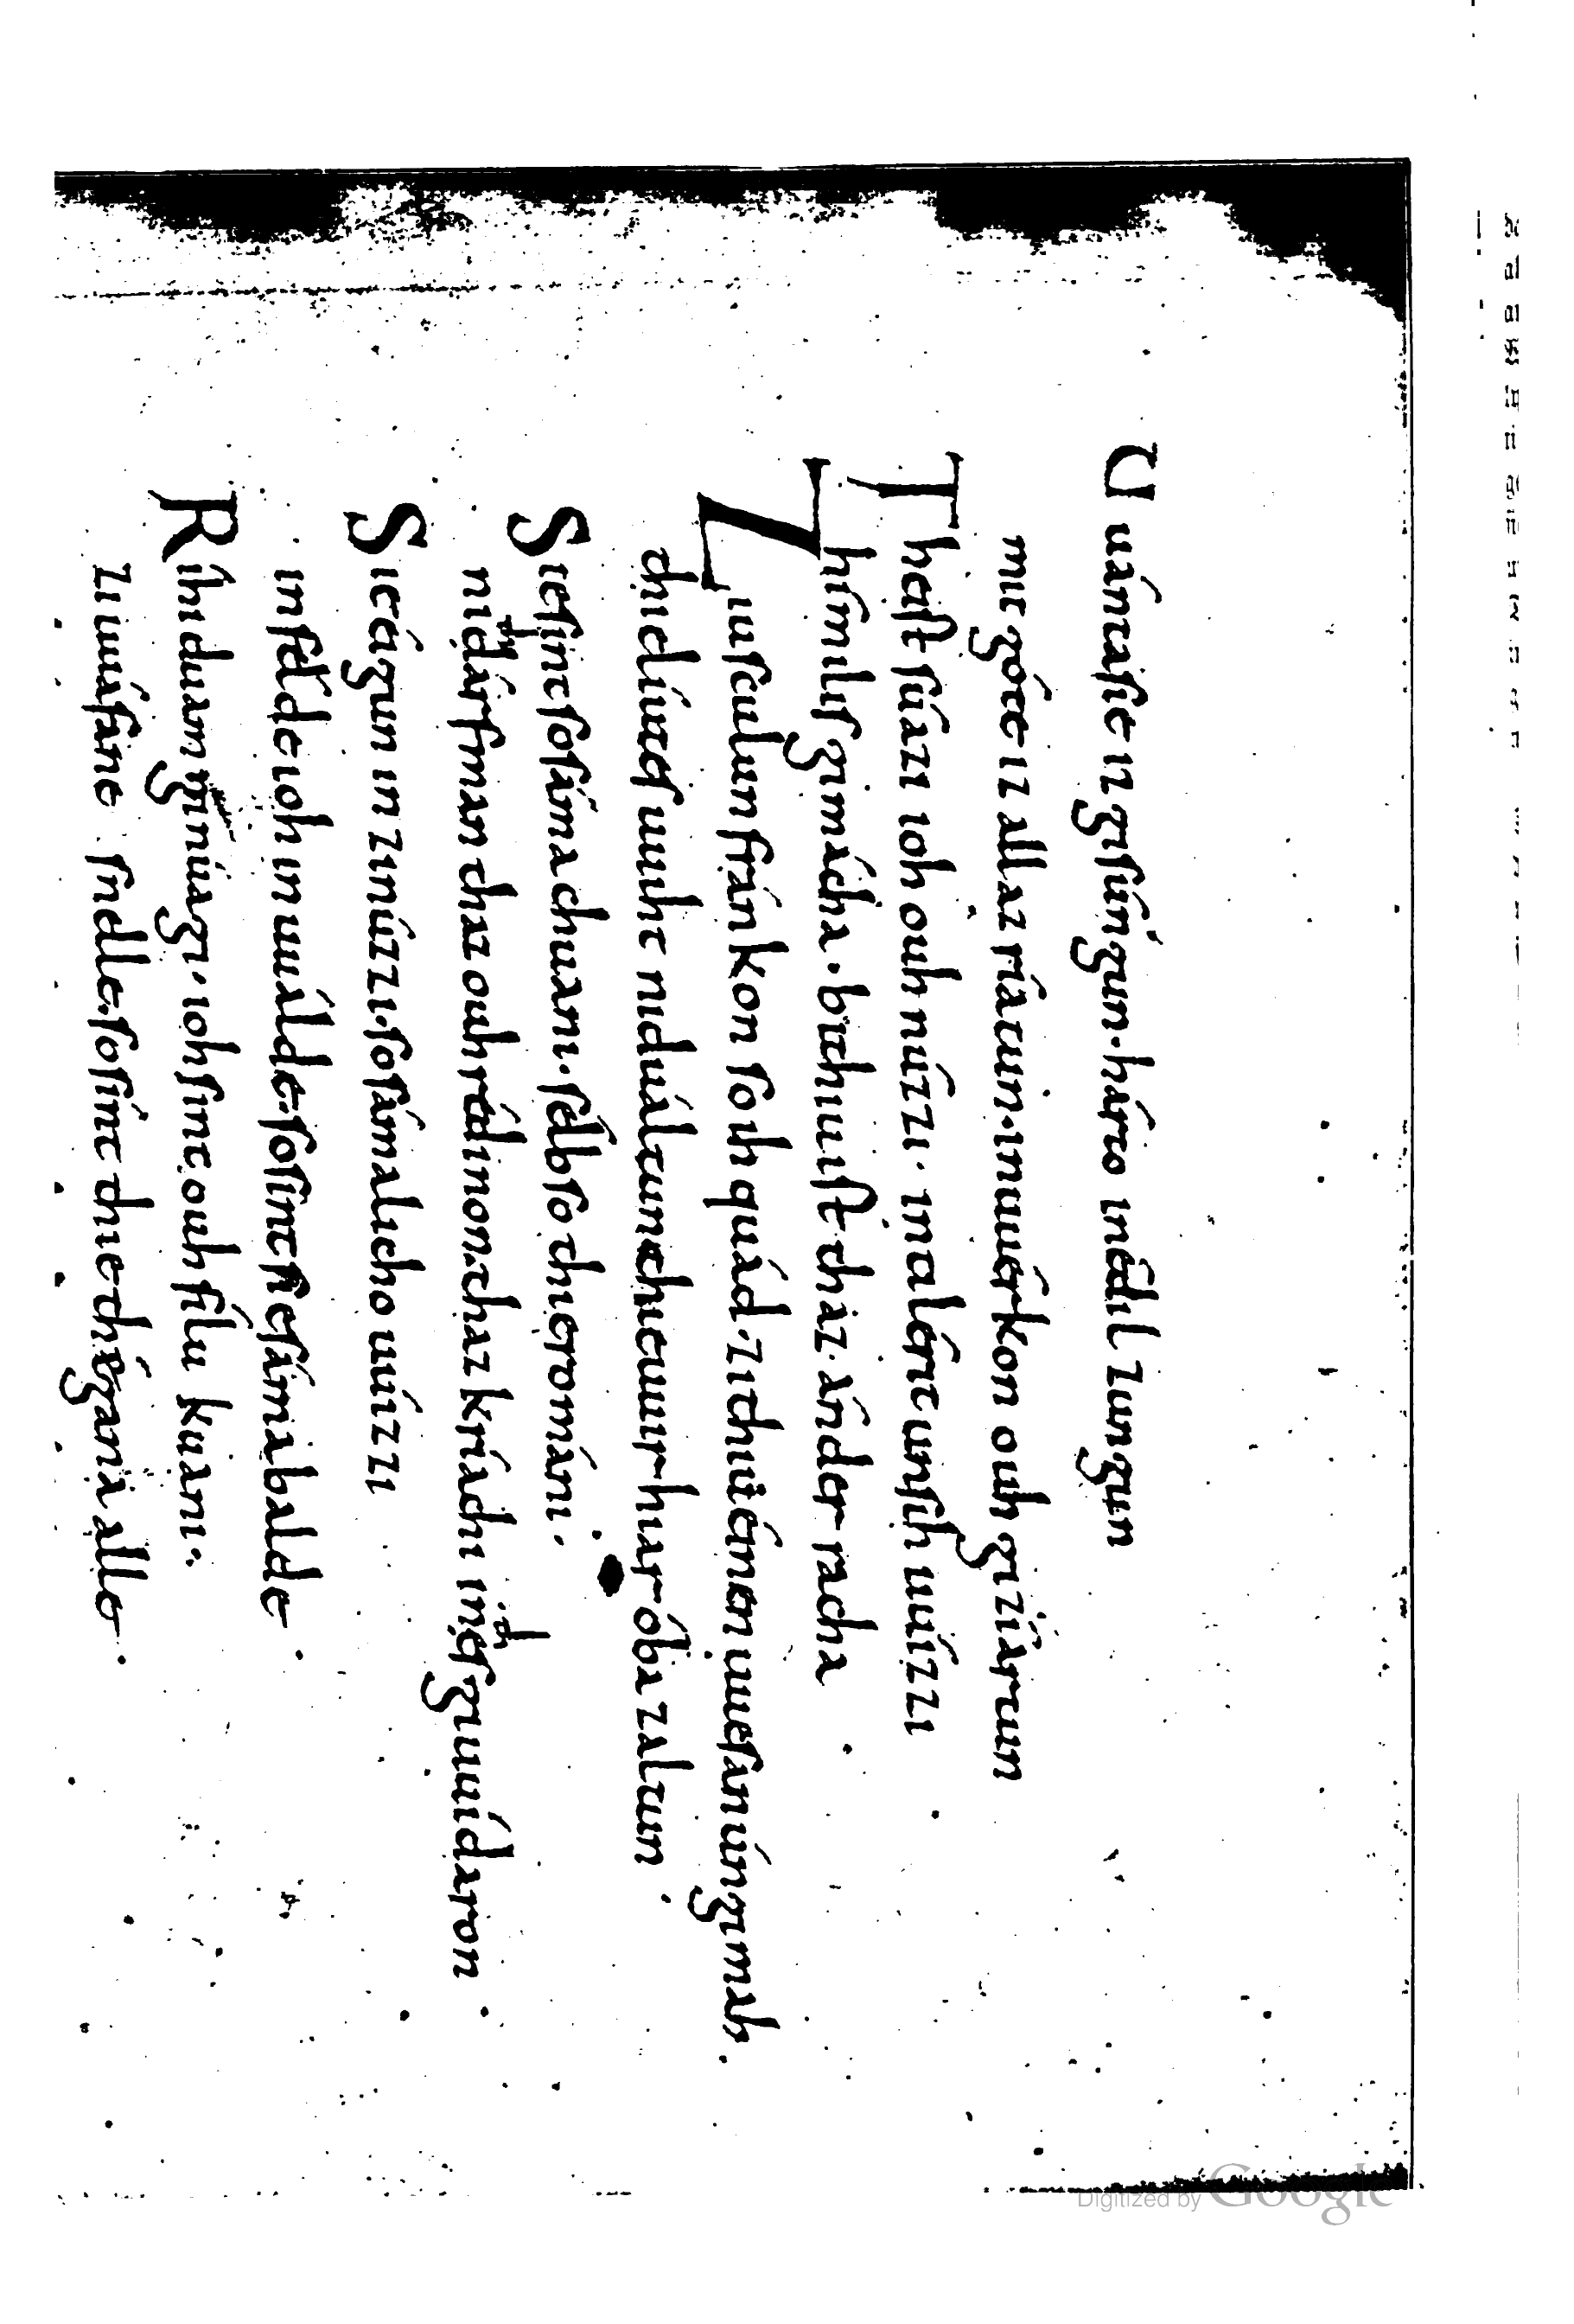 U uántasie iz gisúngun·hárto inédil zungun
mit góte iz allaz ríatun·inuuérkon ouh giziártun
Theist súazi ioh ouh núzzi· inti lérit unsih uuízzi
hímilis gimácha·bithiu ist thaz·ánder racha
Ziu sculun fránkon so ih quád·zi thiu éinen uuesan úngimah·
thie líutes uuiht nidualtun·thie uuir hiar óba zaltun
Sie sint so sáma chuani·selb so thie románi·
nidárf man thaz ouh rédinon·thaz kríachi in es giuuídaron
Sie éigun in zi núzzi·so sámalicho uuízzi
in félde ioh in uuálde·so sint sie sáma balde
Ríhiduam ginúagi·ioh sint ouh filu kuani·
zi uuáfane snelle·so sint thie thégana alle
Digitized by Google